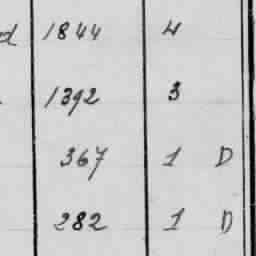 d 1844 4
1392 3
367 1 D
282 1 D